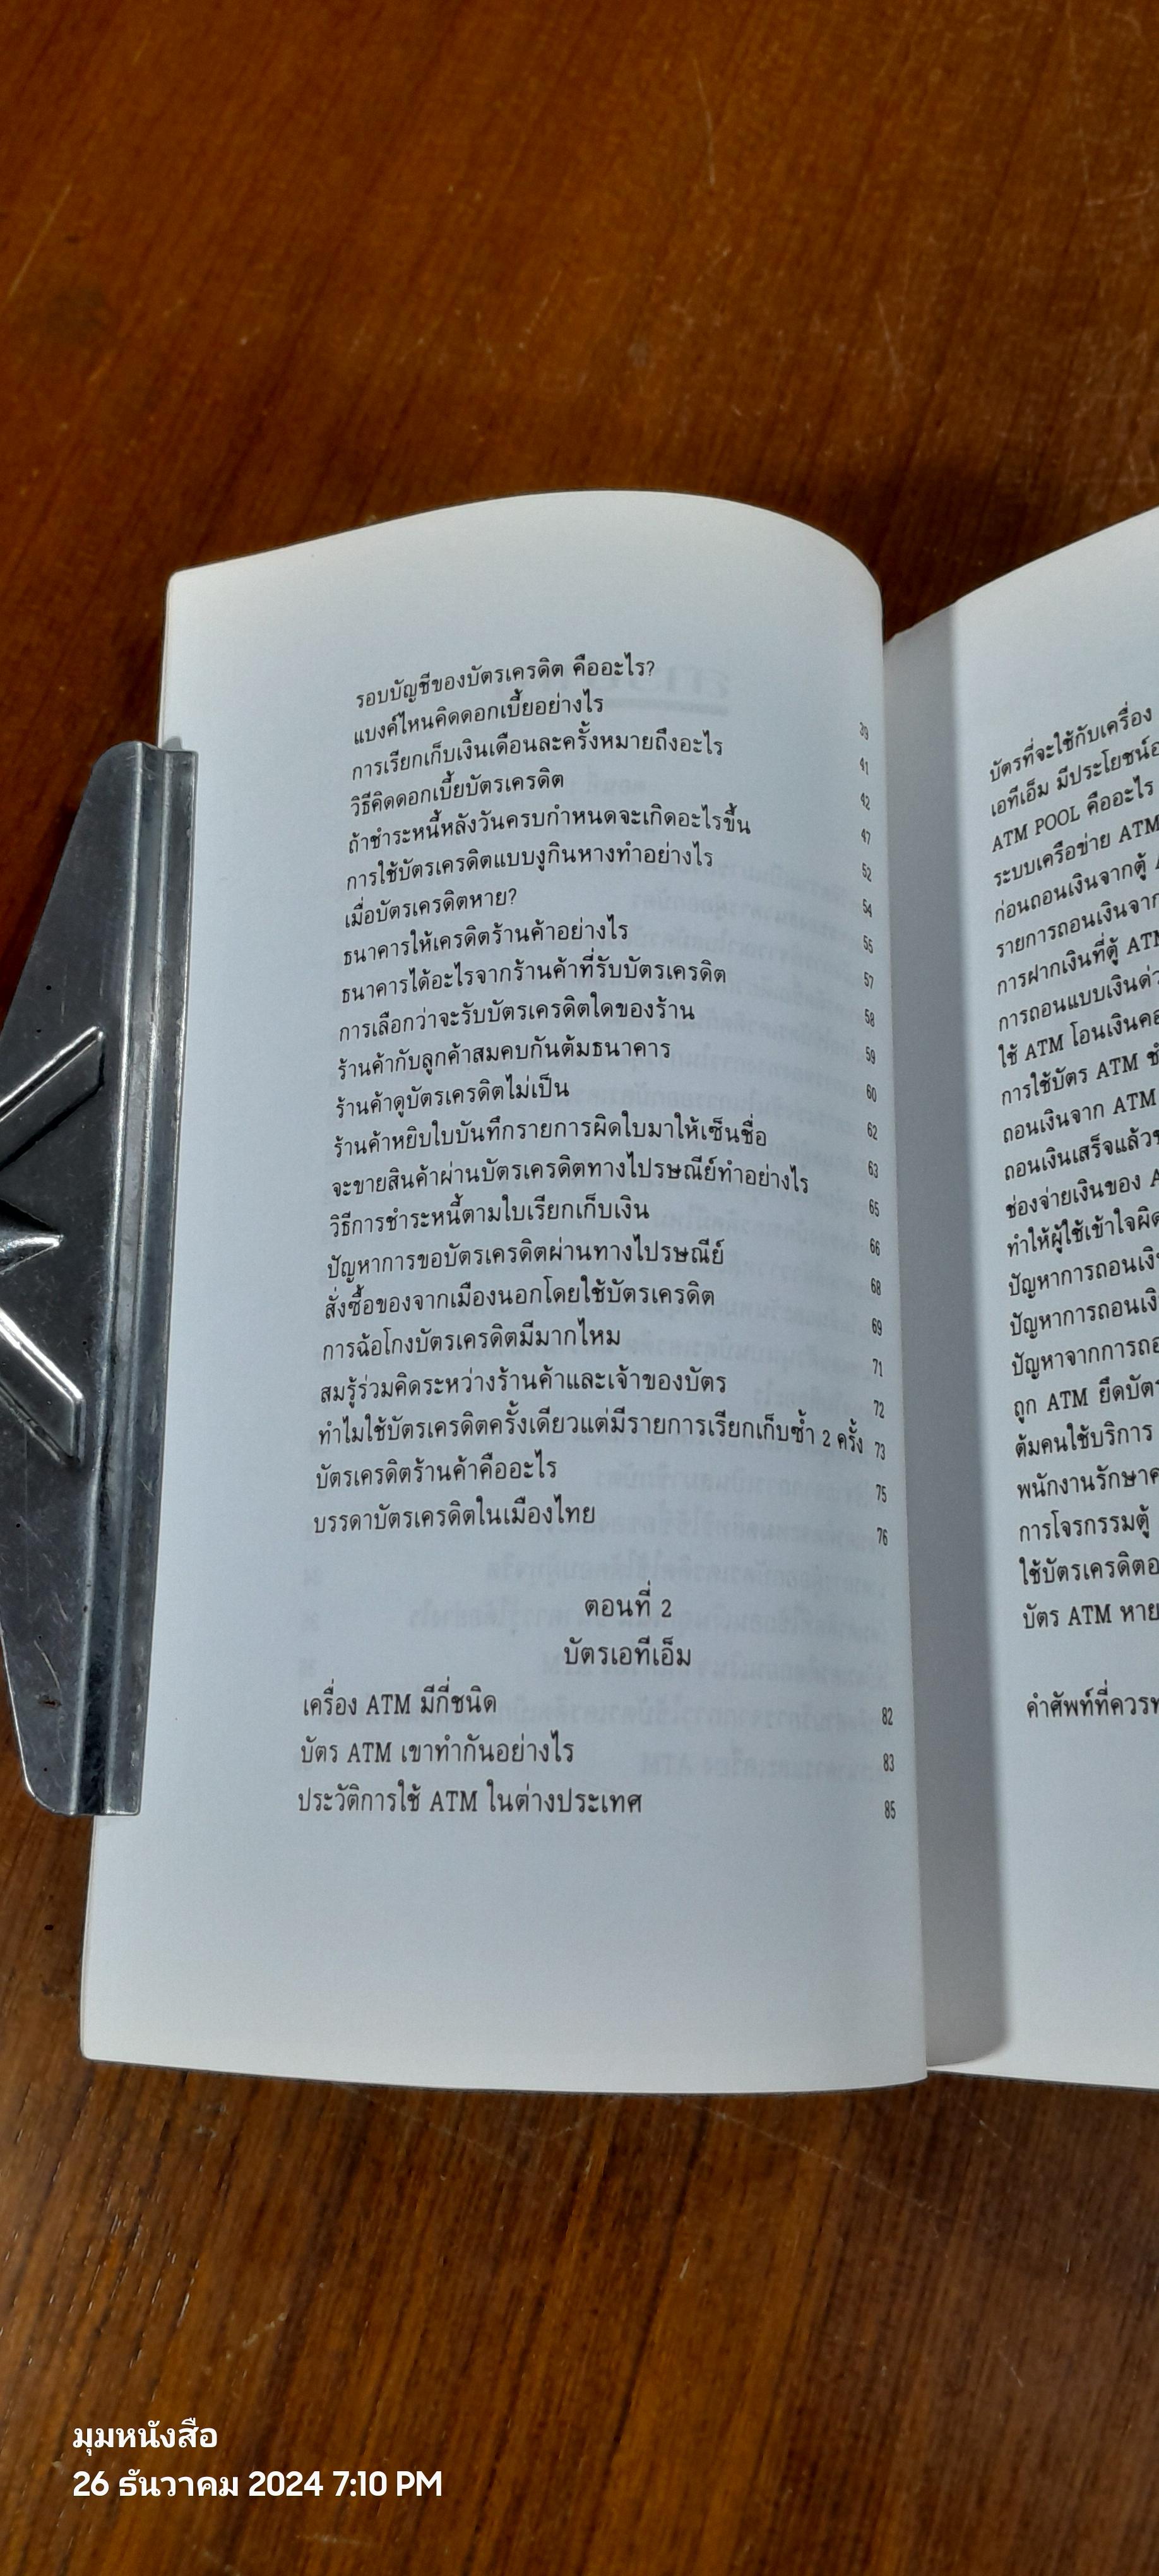 รอบบัญชีของบัตรเครดิต คืออะไร? 39
แบงค์ไหนคิดดอกเบี้ยอย่างไร 41
การเรียกเก็บเงินเดือนละครั้งหมายถึงอะไร 42
วิธีคิดดอกเบี้ยบัตรเครดิต 47
ถ้าชำระหนี้หลังวันครบกำหนดจะเกิดอะไรขึ้น 52
การใช้บัตรเครดิตแบบงูกินหางทำอย่างไร 54
เมื่อบัตรเครดิตหาย? 55
ธนาคารให้เครดิตร้านค้าอย่างไร 57
ธนาคารได้อะไรจากร้านค้าที่รับบัตรเครดิต 58
การเลือกว่าจะรับบัตรเครดิตใดของร้าน 59
ร้านค้ากับลูกค้าสมคบกันต้มธนาคาร 60
ร้านค้าดูบัตรเครดิตไม่เป็น 62
ร้านค้าหยิบใบบันทึกรายการผิดใบมาให้เซ็นชื่อ 63
จะขายสินค้าผ่านบัตรเครดิตทางไปรษณีย์ทำอย่างไร 65
วิธีการชำระหนี้ตามใบเรียกเก็บเงิน 66
ปัญหาการขอบัตรเครดิตผ่านทางไปรษณีย์ 68
สั่งซื้อของจากเมืองนอกโดยใช้บัตรเครดิต 69
การฉ้อโกงบัตรเครดิตมีมากไหม 71
สมรู้ร่วมคิดระหว่างร้านค้าและเจ้าของบัตร 72
ทำไมใช้บัตรเครดิตครั้งเดียวแต่มีรายการเรียกเก็บซ้ำ 2 ครั้ง 73
บัตรเครดิตร้านค้าคืออะไร 75
บรรดาบัตรเครดิตในเมืองไทย 76
ตอนที่ 2
บัตรเอทีเอ็ม
เครื่อง ATM มีกี่ชนิด 82
บัตร ATM เขาทำกันอย่างไร 83
ประวัติการใช้ ATM ในต่างประเทศ 85
บัตรที่จะใช้กับเครื่อง
เอทีเอ็ม มีประโยชน์
ATM POOL คืออะไร
ระบบเครือข่าย ATM
ก่อนถอนเงินจากตู้
รายการถอนเงินจาก
การฝากเงินที่ตู้ ATM
การถอนแบบเงินด่ว
ใช้ ATM โอนเงิน
การใช้บัตร ATM
ถอนเงินจาก ATM
ถอนเงินเสร็จแล้ว
ช่องจ่ายเงินของ
ทำให้ผู้ใช้เข้าใจผิด
ปัญหาการถอนเงิ
ปัญหาการถอนเงิ
ปัญหาจากการถอ
ถูก ATM ยึดบัตร
ต้มคนใช้บริการ
พนักงานรักษา
การโจรกรรมตู้
ใช้บัตรเครดิต
บัตร ATM หาย
คำศัพท์ที่ควร
มุมหนังสือ
26 ธันวาคม 2024 7:10 PM